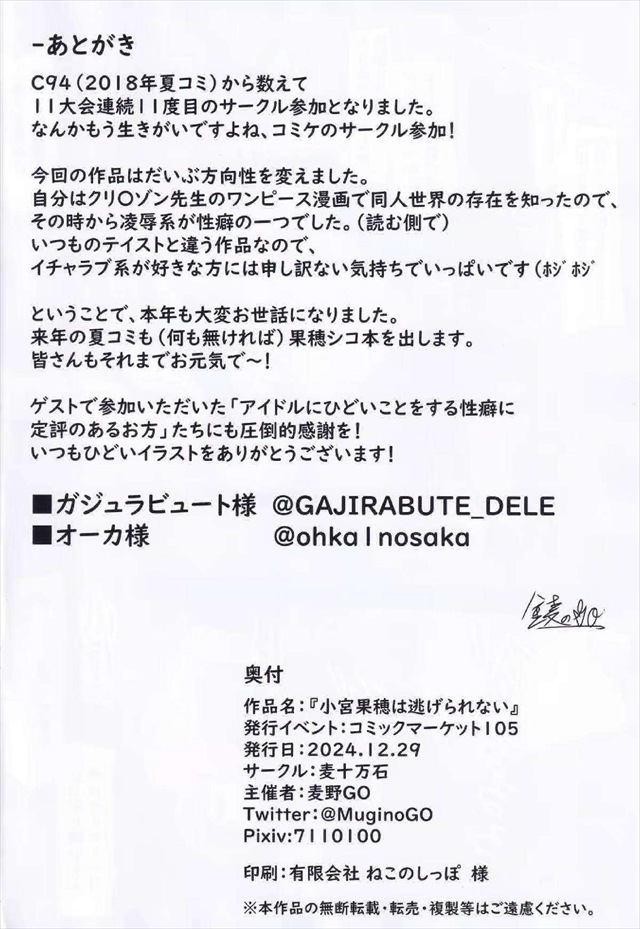 -あとがき
C94(2018年夏コミ)から数えて
11大会連続11度目のサークル参加となりました。
なんかもう生きがいですよね、コミケのサークル参加!
今回の作品はだいぶ方向性を変えました。
自分はクリ〇ゾン先生のワンピース漫画で同人世界の存在を知ったので、
その時から凌辱系が性癖の一つでした。(読む側で)
いつものテイストと違う作品なので、
イチャラブ系が好きな方には申し訳ない気持ちでいっぱいです(ﾎｼﾞﾎｼﾞ
ということで、本年も大変お世話になりました。
来年の夏コミも(何も無ければ)果穂シコ本を出します。
皆さんもそれまでお元気で〜!
ゲストで参加いただいた「アイドルにひどいことをする性癖に
定評のあるお方」たちにも圧倒的感謝を!
いつもひどいイラストをありがとうございます!
■ガジュラビュート様 @GAJIRABUTE_DELE
■オーカ様 @ohka1nosaka
奥付
作品名:『小宮果穂は逃げられない』
発行イベント:コミックマーケット105
発行日:2024.12.29
サークル:麦十万石
主催者:麦野GO
Twitter:@MuginoGO
Pixiv:7110100
印刷:有限会社 ねこのしっぽ 様
※本作品の無断転載・転売・複製等はご遠慮ください。